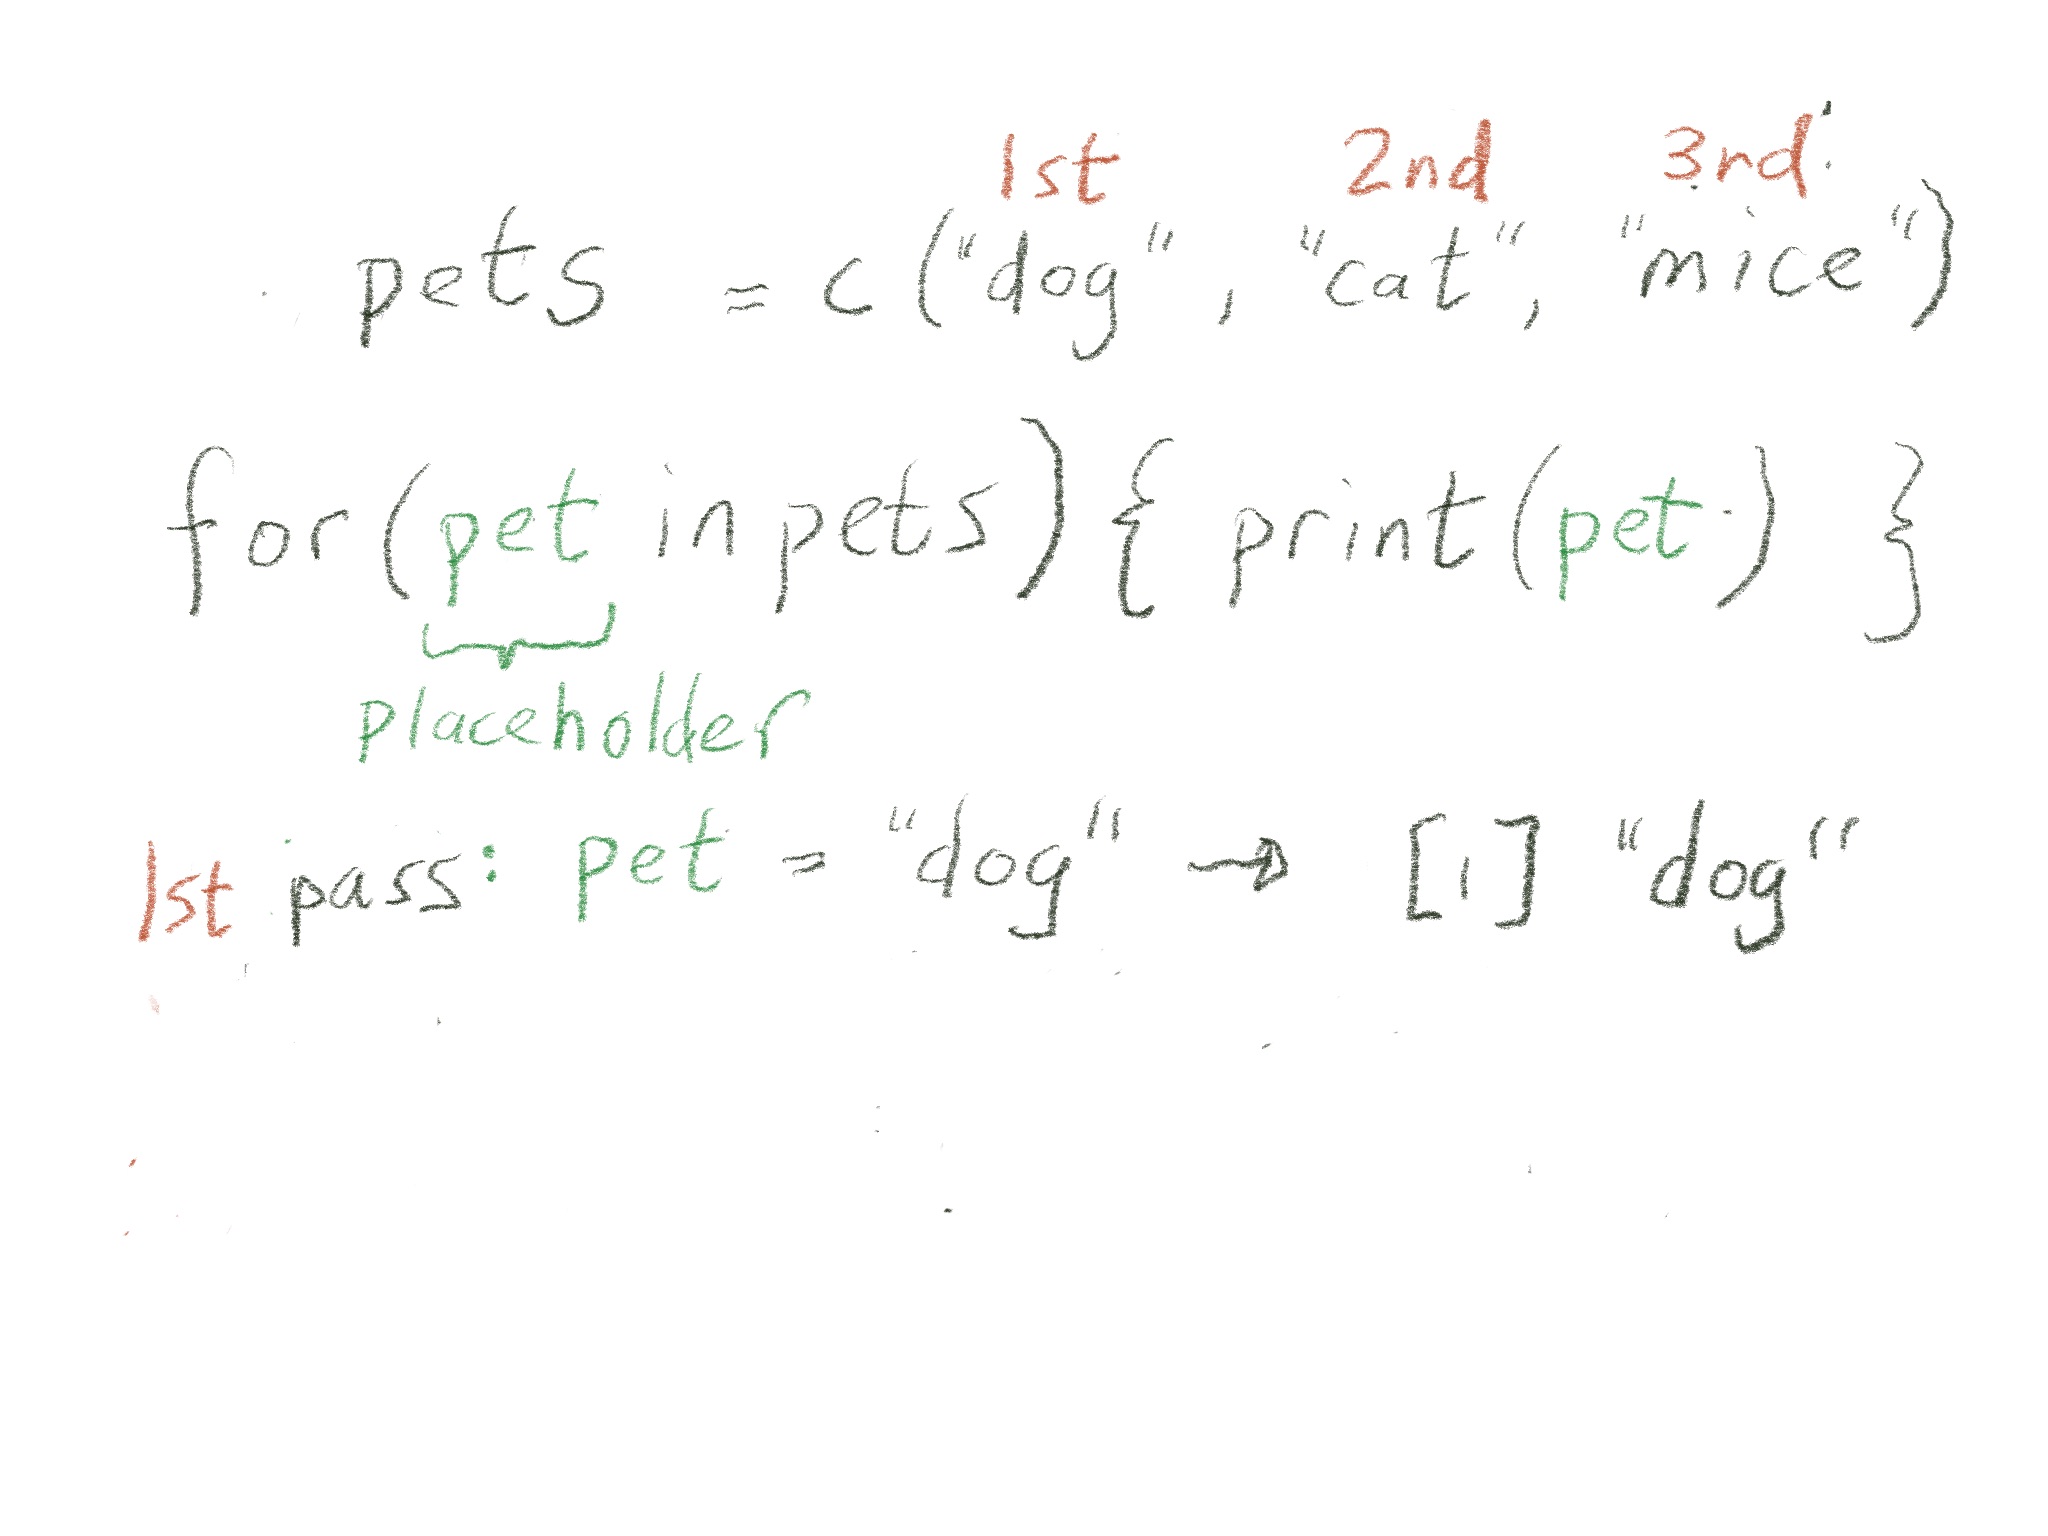 1st 2nd 3rd
pets = c("dog", "cat", "mice")
for(pet in pets){ print(pet) }
placeholder
1st pass: pet = "dog" → [1] "dog"